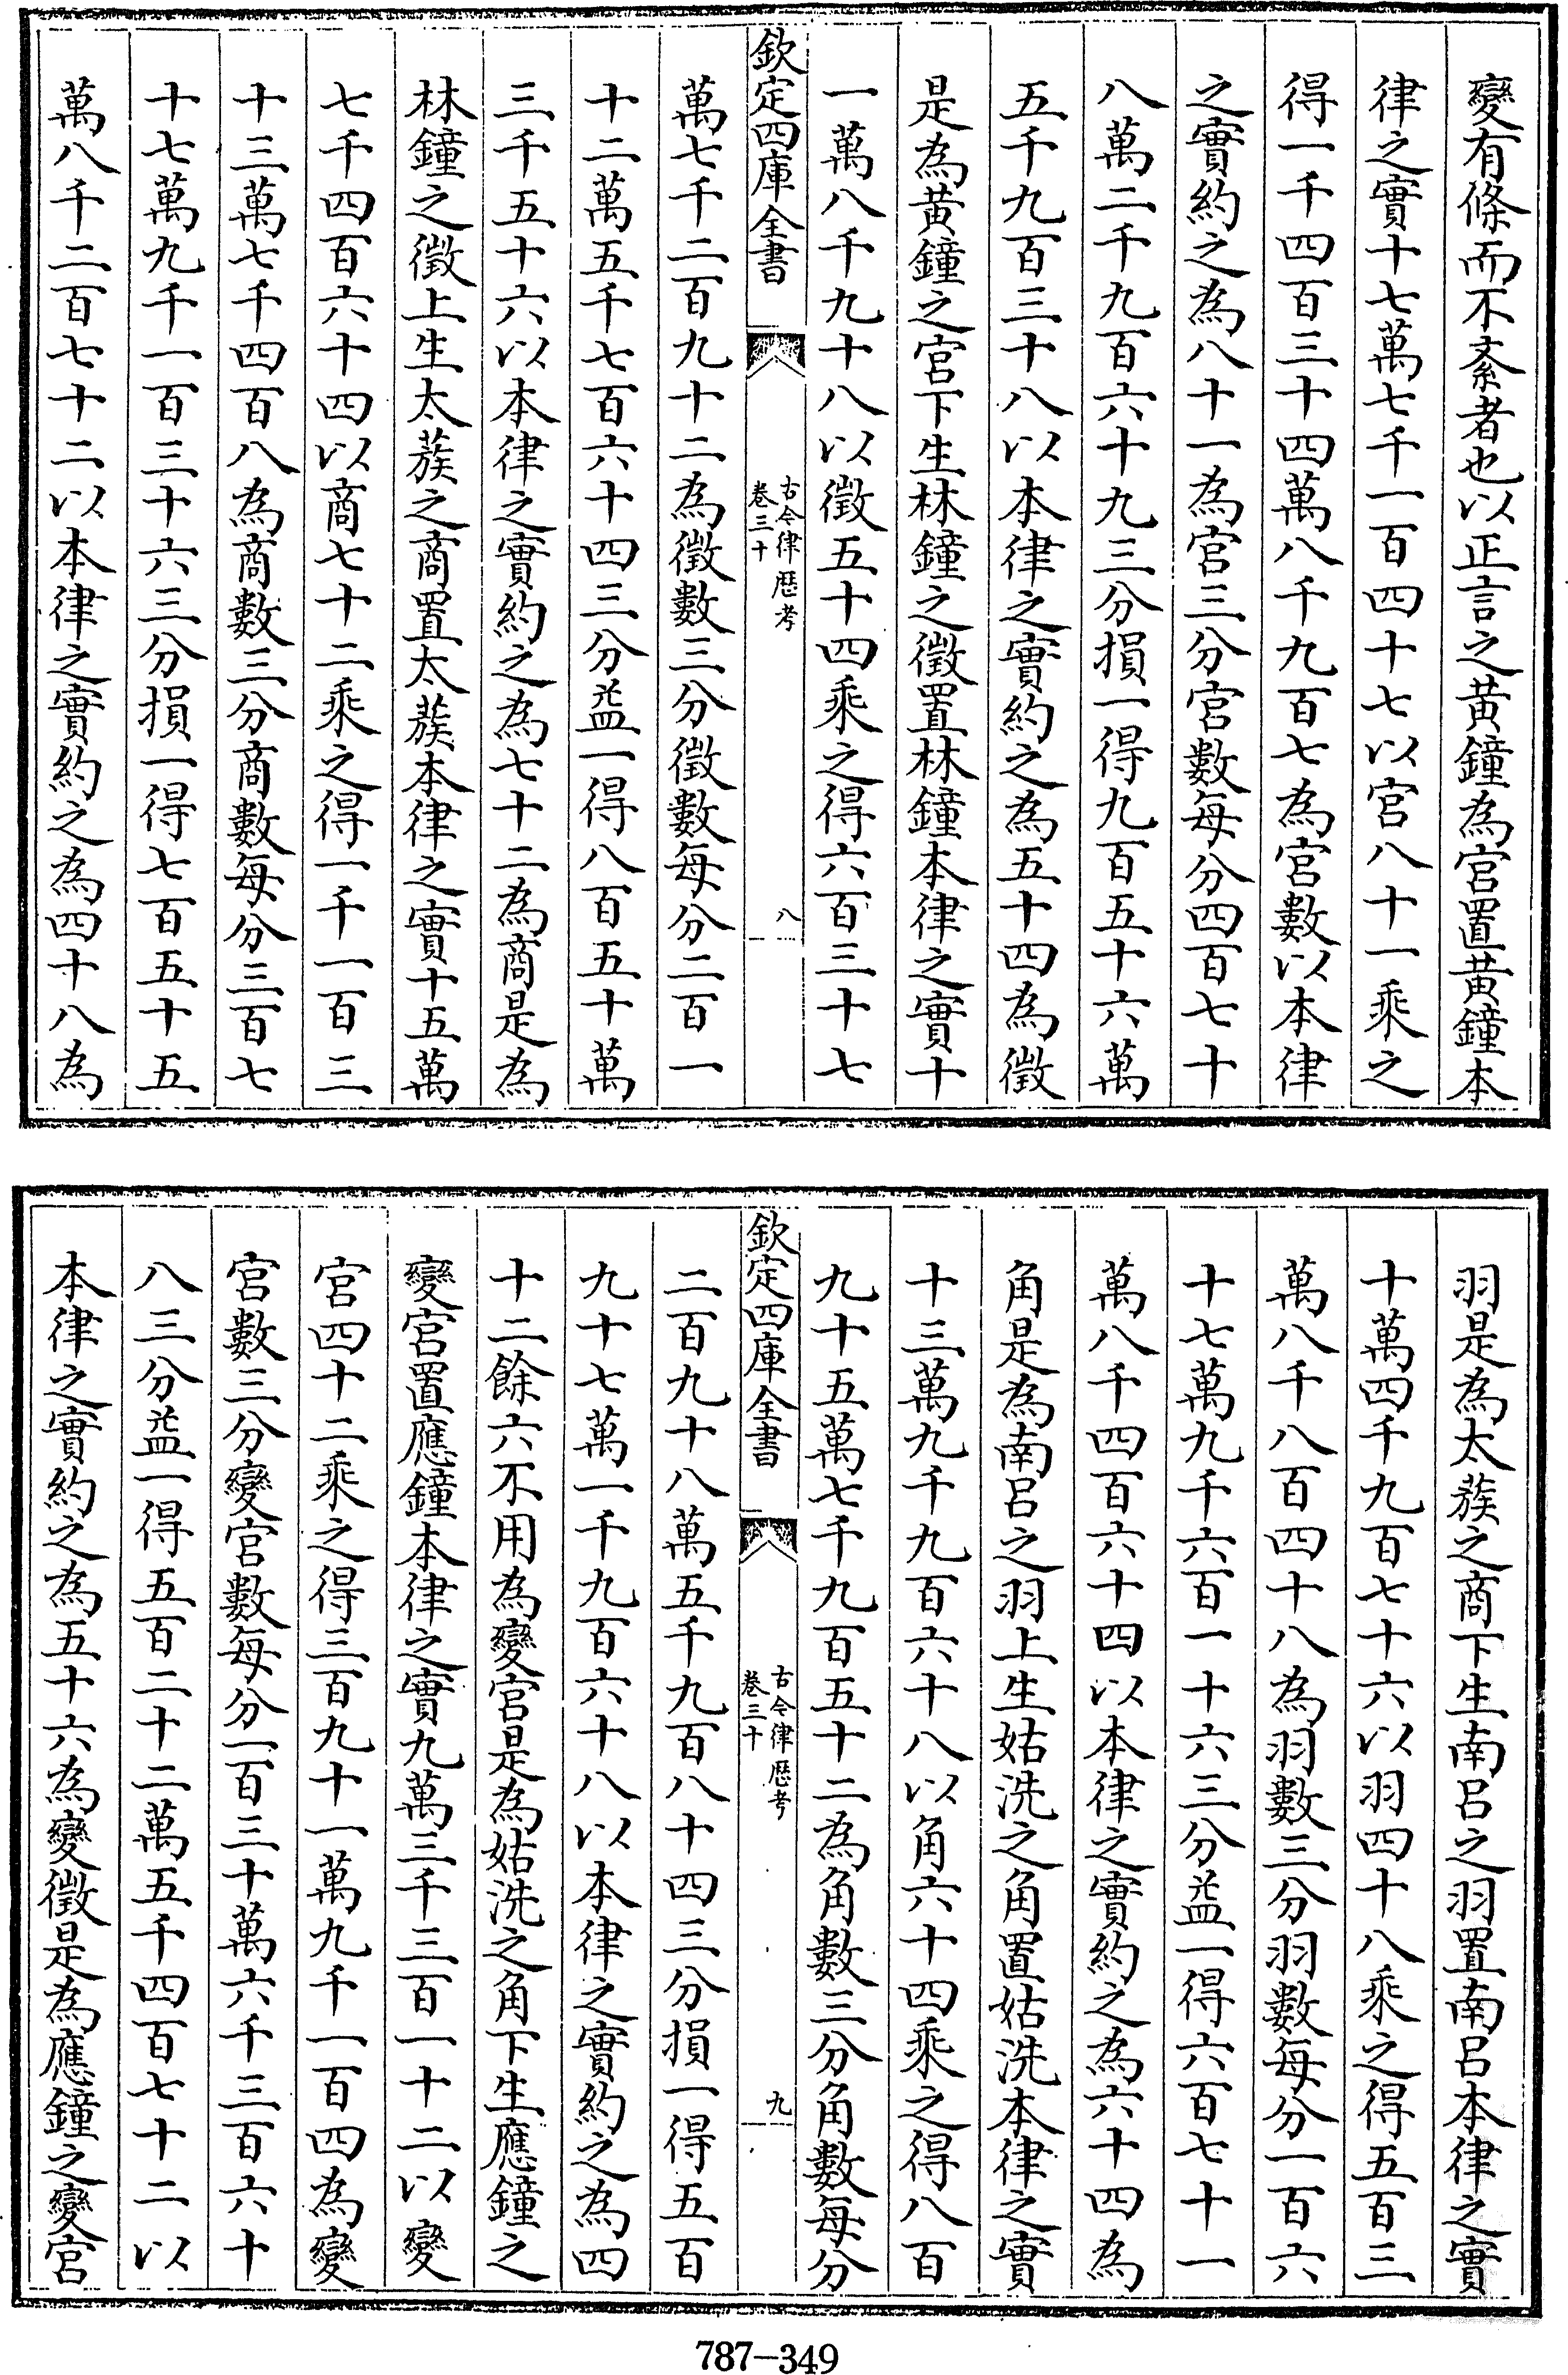 變有條而不紊者也以正言之黃鐘為宮置黃鐘本
律之實十七萬七千一百四十七以宮八十一乘之
得一千四百三十四萬八千九百七為宮數以本律
之實約之為八十一為宮三分宮數每分四百七十
八萬二千九百六十九三分損一得九百五十六萬
五千九百三十八以本律之實約之為五十四為徵
是為黃鐘之宮下生林鐘之徵置林鐘本律之實十
一萬八千九十八以徵五十四乘之得六百三十七
欽定四庫全書
古今律歷考
卷三十
八
萬七千二百九十二為徵數三分徵數每分二百一
十二萬五千七百六十四三分益一得八百五十萬
三千五十六以本律之實約之為七十二為商是為
林鐘之徵上生太蔟之商置太蔟本律之實十五萬
七千四百六十四以商七十二乘之得一千一百三
十三萬七千四百八為商數三分商數每分三百七
十七萬九千一百三十六三分損一得七百五十五
萬八千二百七十二以本律之實約之為四十八為
羽是為太蔟之商下生南呂之羽置南呂本律之實
十萬四千九百七十六以羽四十八乘之得五百三
萬八千八百四十八為羽數三分羽數每分一百六
十七萬九千六百一十六三分益一得六百七十一
萬八千四百六十四以本律之實約之為六十四為
角是為南呂之羽上生姑洗之角置姑洗本律之實
十三萬九千九百六十八以角六十四乘之得八百
九十五萬七千九百五十二為角數三分角數每分
欽定四庫全書
古今律歷考
卷三十
九
二百九十八萬五千九百八十四三分損一得五百
九十七萬一千九百六十八以本律之實約之為四
十二餘六不用為變宮是為姑洗之角下生應鐘之
變宮置應鐘本律之實九萬三千三百一十二以變
宮四十二乘之得三百九十一萬九千一百四為變
宮數三分變宮數每分一百三十萬六千三百六十
八三分益一得五百二十二萬五千四百七十二以
本律之實約之為五十六為變徵是為應鐘之變宮
787-349